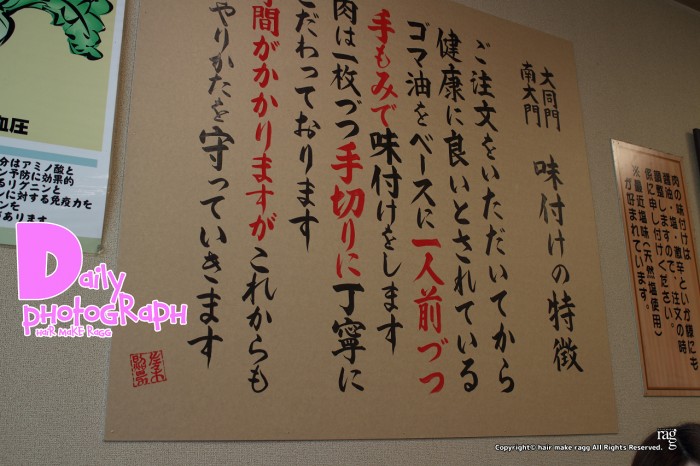 大同門
南大門
味付けの特徴
ご注文をいただいてから
健康に良いとされている
ゴマ油をベースに一人前づつ
手もみで味付けをします
肉は一枚づつ手切りに丁寧に
こだわっております
時間がかかりますがこれからも
やりかたを守っていきます
肉の味付けは
醤油・
調整しますので、
係に申し付けください。
※最近塩味(天然塩使用)
が好まれています。
血圧
分はアミノ酸と
ン予防に効果的
るリグニンと
ンに対する免疫力を
があります
Daily
PhotoGraph
HaiR MaKE RaGG
ragg
Copyright© hair make ragg All Rights Reserved.